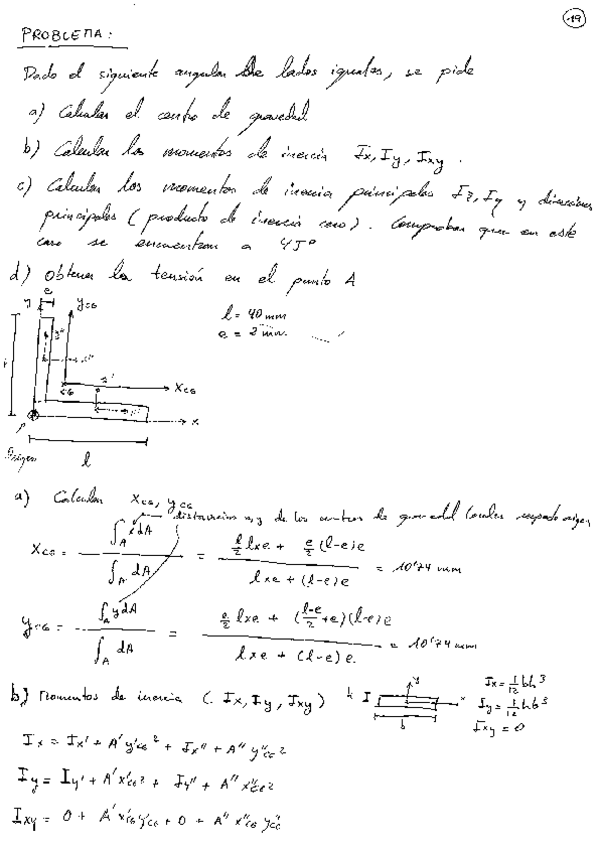 19
PROBLEMA:
Dado el siguiente angular de lados iguales, se pide
a) Calcular el centro de gravedad
b) Calcular los momentos de inercia Ix, Iy, Ixy.
c) Calcular los momentos de inercia principales Iξ, Iη y direcciones
principales (producto de inercia cero). Comprobar que en este
caso se encuentran a 45º
d) Obtener la tensión en el punto A
e
y yCG
l = 40 mm
e = 2 mm.
CG xCG
A x
Origen l
a) Calcular xCG, yCG
distancias x, y de los centros de gravedad locales respecto origen
XCG = ∫A x dA / ∫A dA = (l/2 l×e + e/2 (l-e)e) / (l×e + (l-e)e) = 10'74 mm
yCG = ∫A y dA / ∫A dA = (e/2 l×e + ((l-e)/2 + e)(l-e)e) / (l×e + (l-e)e.) = 10'74 mm
b) Momentos de inercia (Ix, Iy, Ixy)
h y x b
Ix = 1/12 bh³
Iy = 1/12 hb³
Ixy = 0
Ix = Ix' + A' y'CG² + Ix'' + A'' y''CG²
Iy = Iy' + A' x'CG² + Iy'' + A'' x''CG²
Ixy = 0 + A' x'CG y'CG + 0 + A'' x''CG y''CG